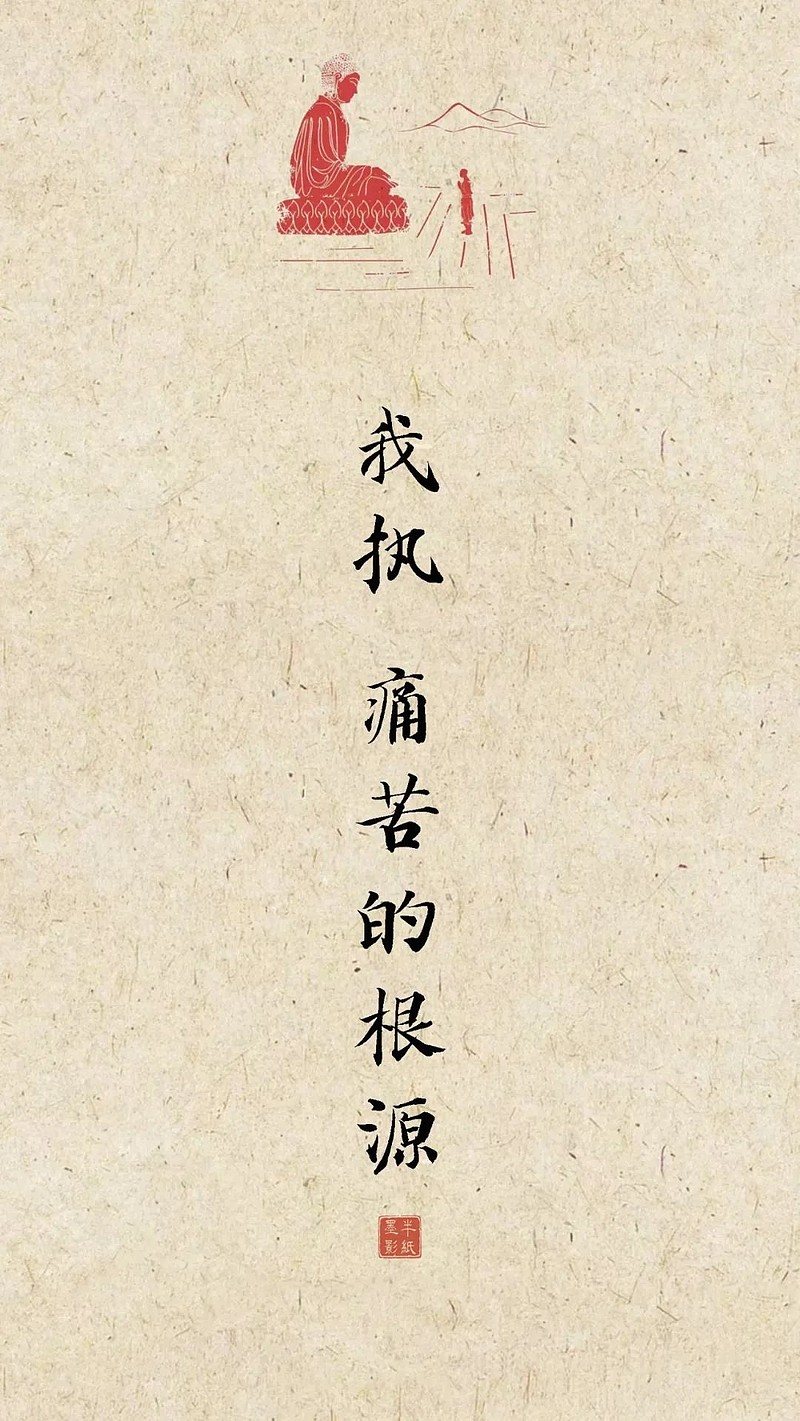 我执 痛苦的根源
半纸
墨影